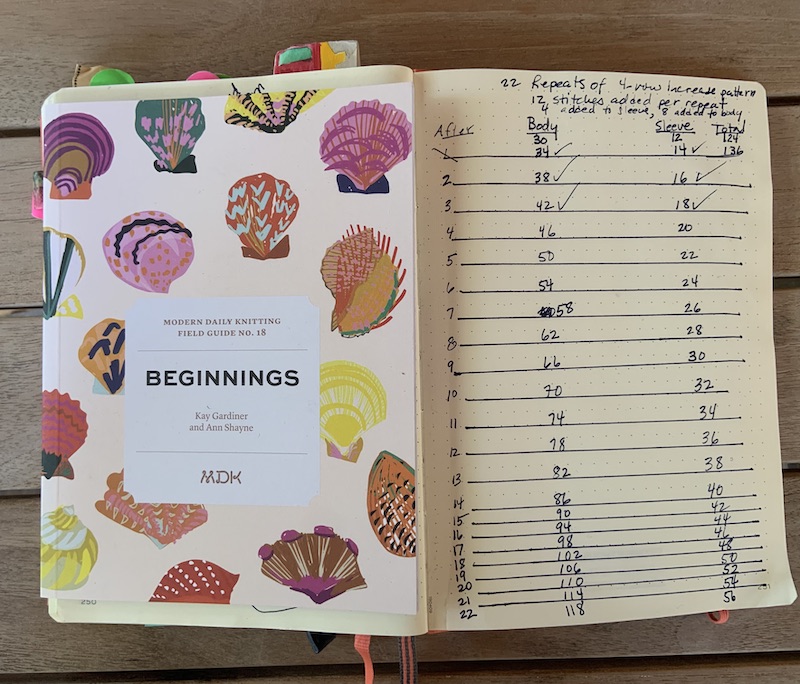 MODERN DAILY KNITTING
FIELD GUIDE NO. 18
BEGINNINGS
Kay Gardiner
and Ann Shayne
MDK
250
22 Repeats of 4-row increase pattern
12 stitches added per repeat
4 added to sleeve, 8 added to body
After Body Sleeve Total
30 12 124
1 34 ✓ 14 ✓ 136
2 38 ✓ 16 ✓
3 42 ✓ 18 ✓
4 46 20
5 50 22
6 54 24
7 58 26
8 62 28
9 66 30
10 70 32
11 74 34
12 78 36
13 82 38
14 86 40
15 90 42
16 94 44
17 98 46
18 102 48
19 106 50
20 110 52
21 114 54
22 118 56